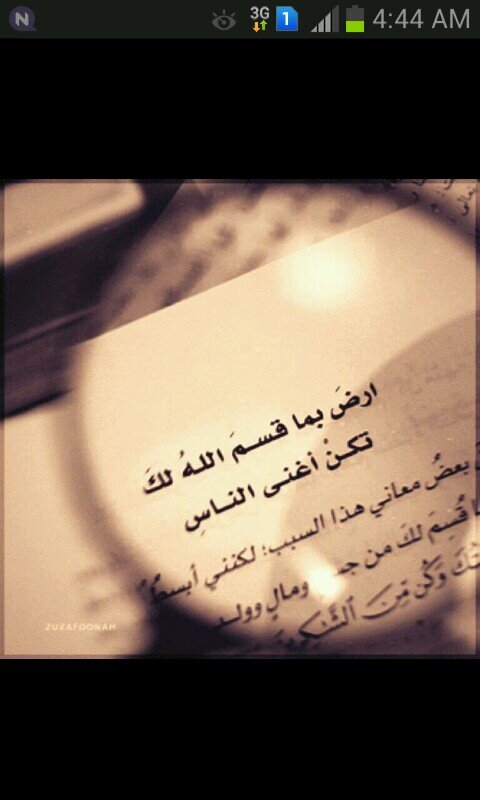 3G
1
4:44 AM
ارضَ بما قسمَ اللهُ لكَ
تكنْ أغنى الناسِ
بعضُ معاني هذا السبب؛ لكنني أبسطُ
قُسِمَ لكَ من جسمٍ ومالٍ وولدٍ
وَكُن مِّنَ ٱلشَّٰكِرِينَ
ZUZAFOONAH